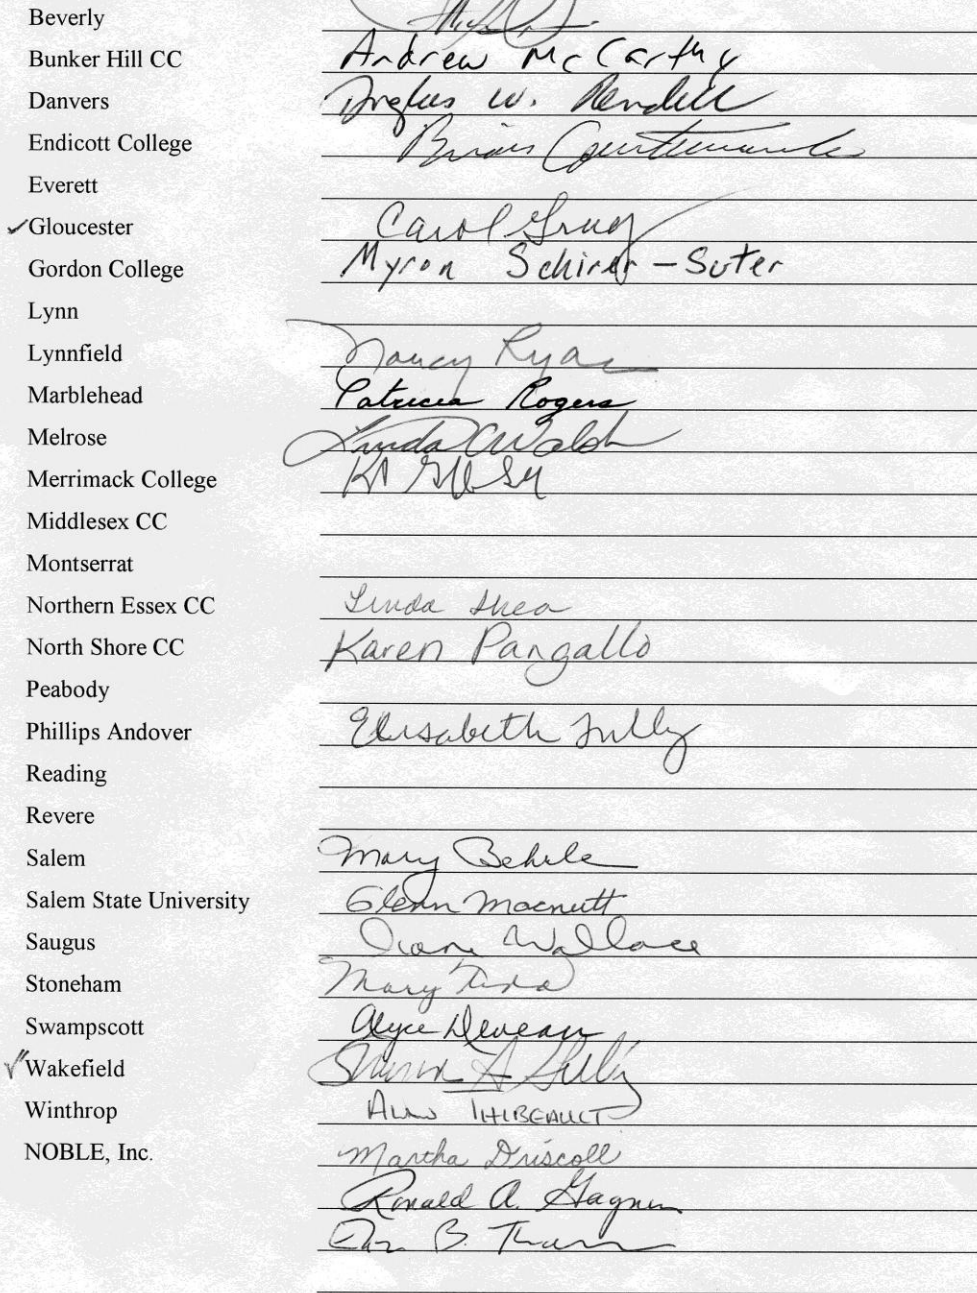 Beverly
Bunker Hill CC Andrew McCarthy
Danvers Douglas W. Rendell
Endicott College Brian Courtemanche
Everett
✓Gloucester Carol Gray
Gordon College Myron Schirer-Suter
Lynn
Lynnfield Nancy Ryan
Marblehead Patricia Rogers
Melrose Linda C Walsh
Merrimack College
Middlesex CC
Montserrat
Northern Essex CC Linda Shea
North Shore CC Karen Pangallo
Peabody
Phillips Andover Elisabeth Tully
Reading
Revere
Salem Mary Behrle
Salem State University Glenn Macnutt
Saugus Diane Wallace
Stoneham Mary Todd
Swampscott Alyce Deveau
✓Wakefield Sharon A Gilley
Winthrop Alan THIBEAULT
NOBLE, Inc. Martha Driscoll
Ronald A. Gagnon
B. Thomsen